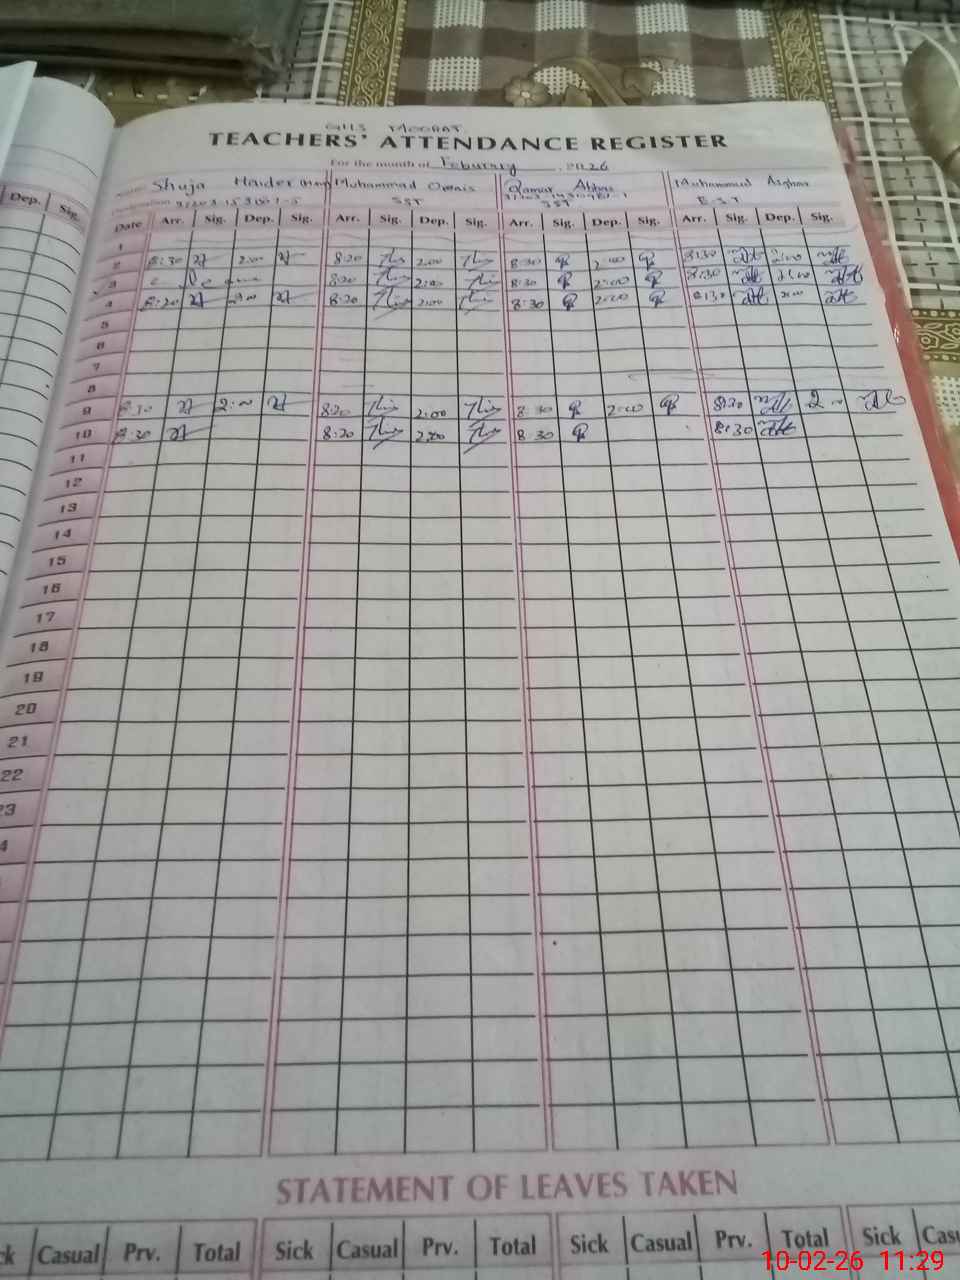 GHS MOORAT
TEACHERS' ATTENDANCE REGISTER
For the month of Feburary 2026
Name Shuja Haider Muhammad Omais Qamar Abbas Muhammad Asghar
Designation SST SST E.S.T
Dep. Sig. Date Arr. Sig. Dep. Sig. Arr. Sig. Dep. Sig. Arr. Sig. Dep. Sig. Arr. Sig. Dep. Sig.
1
2 8:30 2:00 8:20 2:00 8:30 2:00 8:30 2:00
3 8:20 2:00 8:30 2:00 8:30 2:00
4 8:20 2:00 8:20 2:00 8:30 2:00 8:30 2:00
5
6
7
8
9 8:30 2:00 8:20 2:00 8:30 2:00 8:30 2
10 8:30 8:20 2:00 8:30 8:30
11
12
13
14
15
16
17
18
19
20
21
22
23
4
STATEMENT OF LEAVES TAKEN
ck Casual Prv. Total Sick Casual Prv. Total Sick Casual Prv. Total Sick Casu
10-02-26 11:29